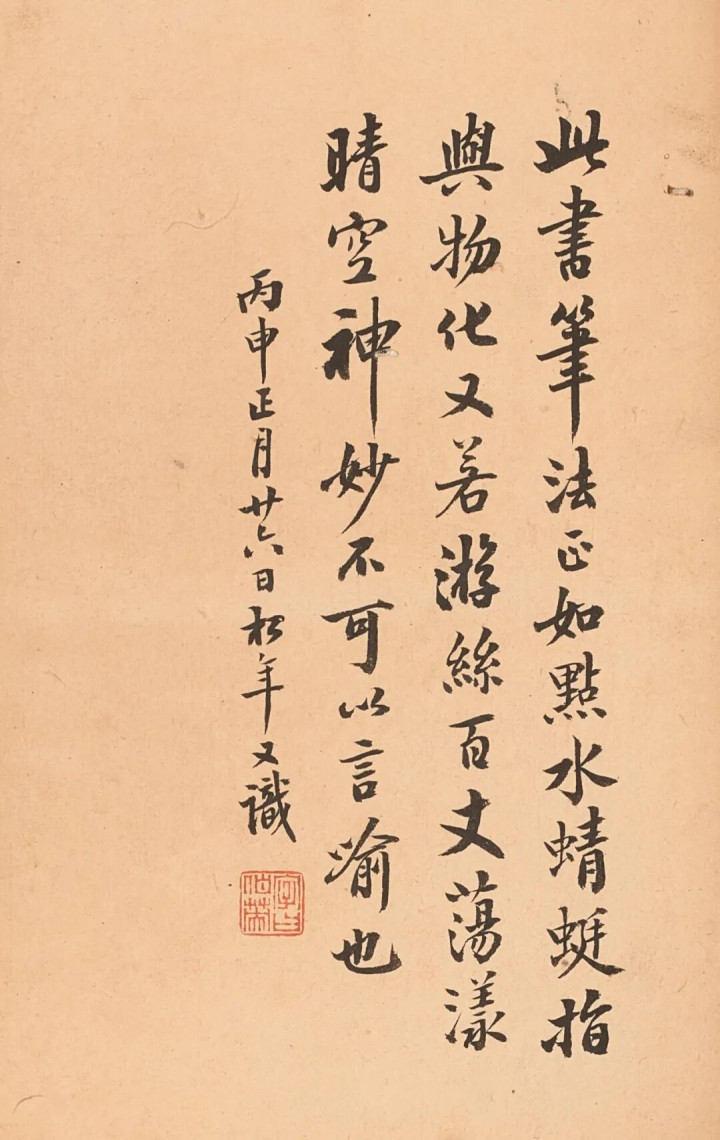 此書筆法正如點水蜻蜓指
與物化又若游絲百丈蕩漾
晴空神妙不可以言喻也
丙申正月廿六日松年又識